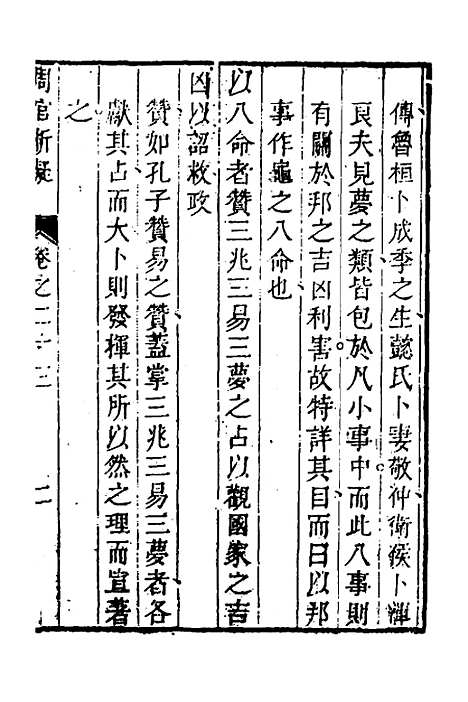 傳魯桓卜成季之生懿氏卜妻敬仲衛侯卜渾
良夫見夢之類皆包於凡小事中而此八事則
有關於邦之吉凶利害故特詳其目而曰以邦
事作龜之八命也
以八命者贊三兆三易三夢之占以觀國家之吉
凶以詔救政
贊如孔子贊易之贊蓋掌三兆三易三夢者各
獻其占而大卜則發揮其所以然之理而宣著
之
周官析疑
卷之二十三
二